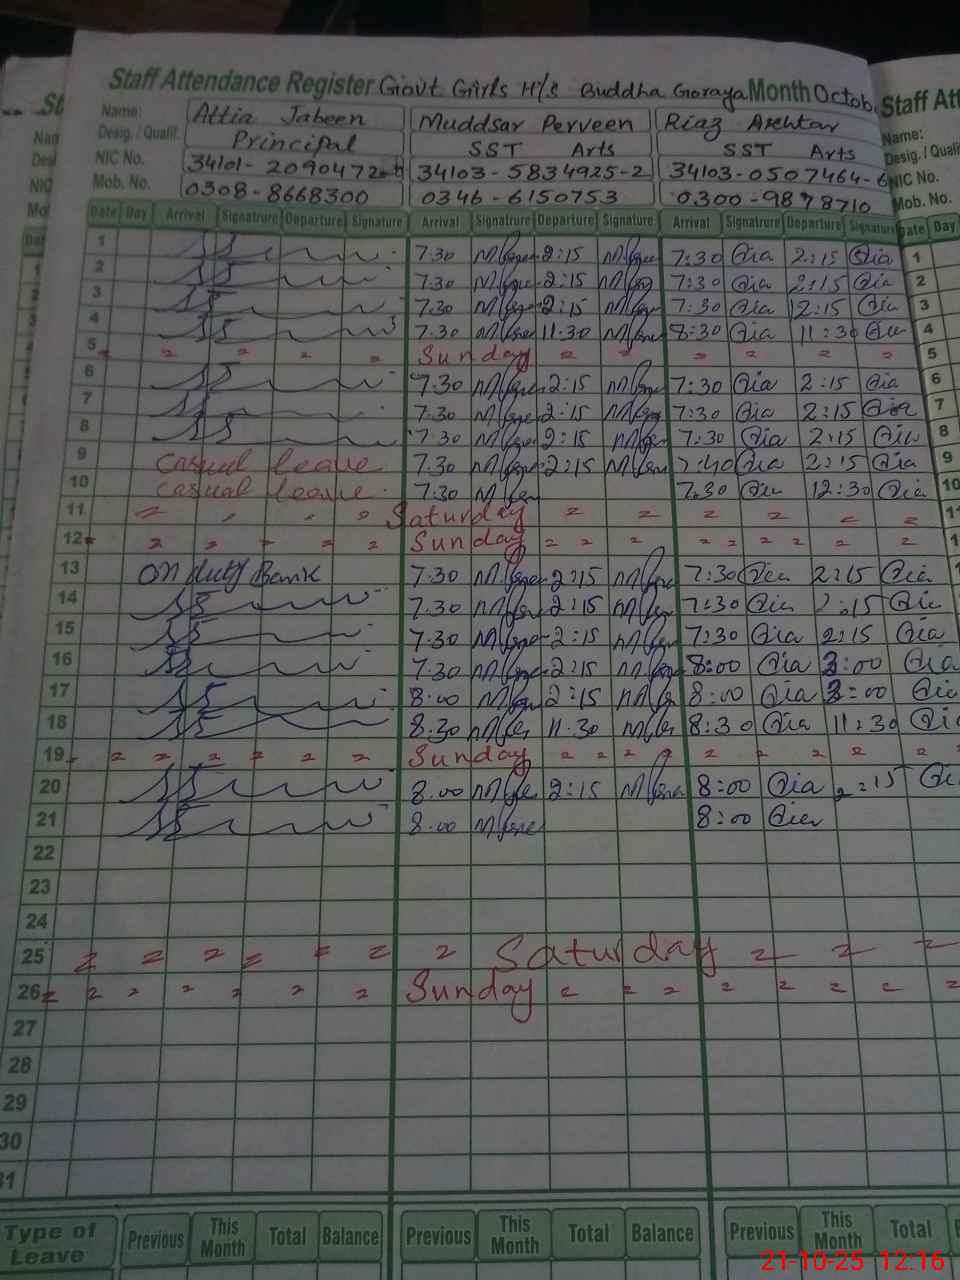 Staff Attendance Register Govt Girls H/s Buddha Goraya Month Octob.
Name: Attia Jabeen Muddsar Perveen Riaz Akhtar
Desig. / Qualif. Principal SST Arts SST Arts
NIC No. 34101-2090472- 34103-5834925-2 34103-0507464-6
Mob. No. 0308-8668300 0346-6150753 0300-9878710
Date Day Arrival Signatrure Departure Signature Arrival Signatrure Departure Signature Arrival Signatrure Departure Signature
1 7.30 2:15 7:30 2:15
2 7.30 2:15 7:30 2:15
3 7.30 2:15 7:30 12:15
4 7.30 11.30 8:30 11:30
5 Sunday
6 7.30 2:15 7:30 2:15
7 7.30 2:15 7:30 2:15
8 7.30 2:15 7:30 2:15
9 Casual leave 7.30 2:15 7:40 2:15
10 Casual leave 7.30 7.30 12:30
11 Saturday
12 Sunday
13 On duty Bank 7.30 2:15 7:30 2:15
14 7.30 2:15 7:30 2:15
15 7.30 2:15 7:30 2:15
16 7.30 2:15 8:00 :00
17 8.00 2:15 8:00 :00
18 8.30 11.30 8:30 11:30
19 Sunday
20 8.00 2:15 8:00 2:15
21 8.00 8:00
22
23
24
25 Saturday
26 Sunday
27
28
29
30
31
Type of Leave Previous This Month Total Balance Previous This Month Total Balance Previous This Month Total
21-10-25 12:16
Staff Att
Name:
Desig. / Quali
NIC No.
Mob. No.
Date Day
1
2
3
4
5
6
7
8
9
10